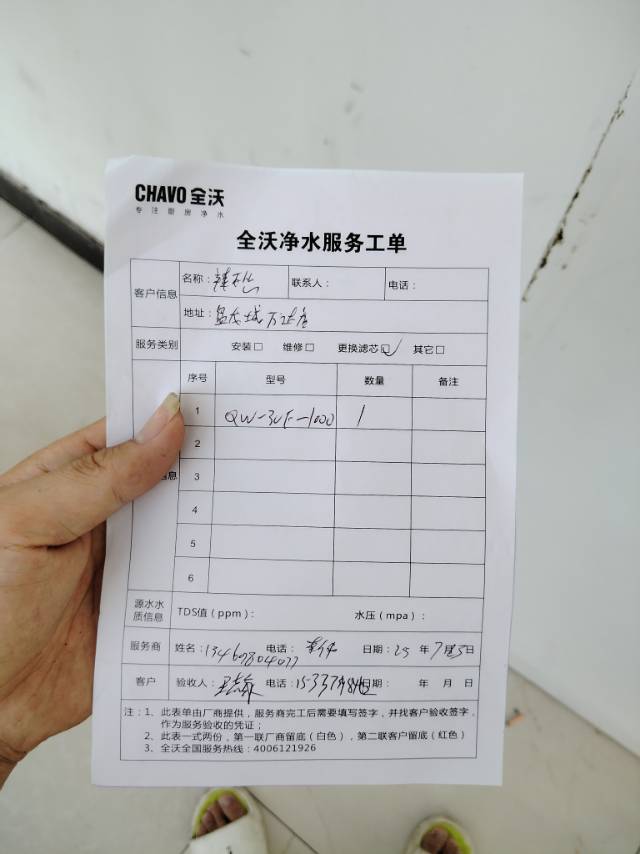 CHAVO 全沃
专注厨房净水
全沃净水服务工单
客户信息
名称： 联系人： 电话：
地址：盘龙城万达店
服务类别 安装□ 维修□ 更换滤芯□✓ 其它□
序号 型号 数量 备注
1 QW-3UF-1000 1
2
息 3
4
5
6
源水水质信息 TDS值（ppm）： 水压（mpa）：
服务商 姓名： 电话： 日期：25 年7月3日
客户 验收人： 电话： 日期： 年 月 日
注：1、此表单由厂商提供，服务商完工后需要填写签字，并找客户验收签字，
作为服务验收的凭证；
2、此表一式两份，第一联厂商留底（白色），第二联客户留底（红色）
3、全沃全国服务热线：4006121926